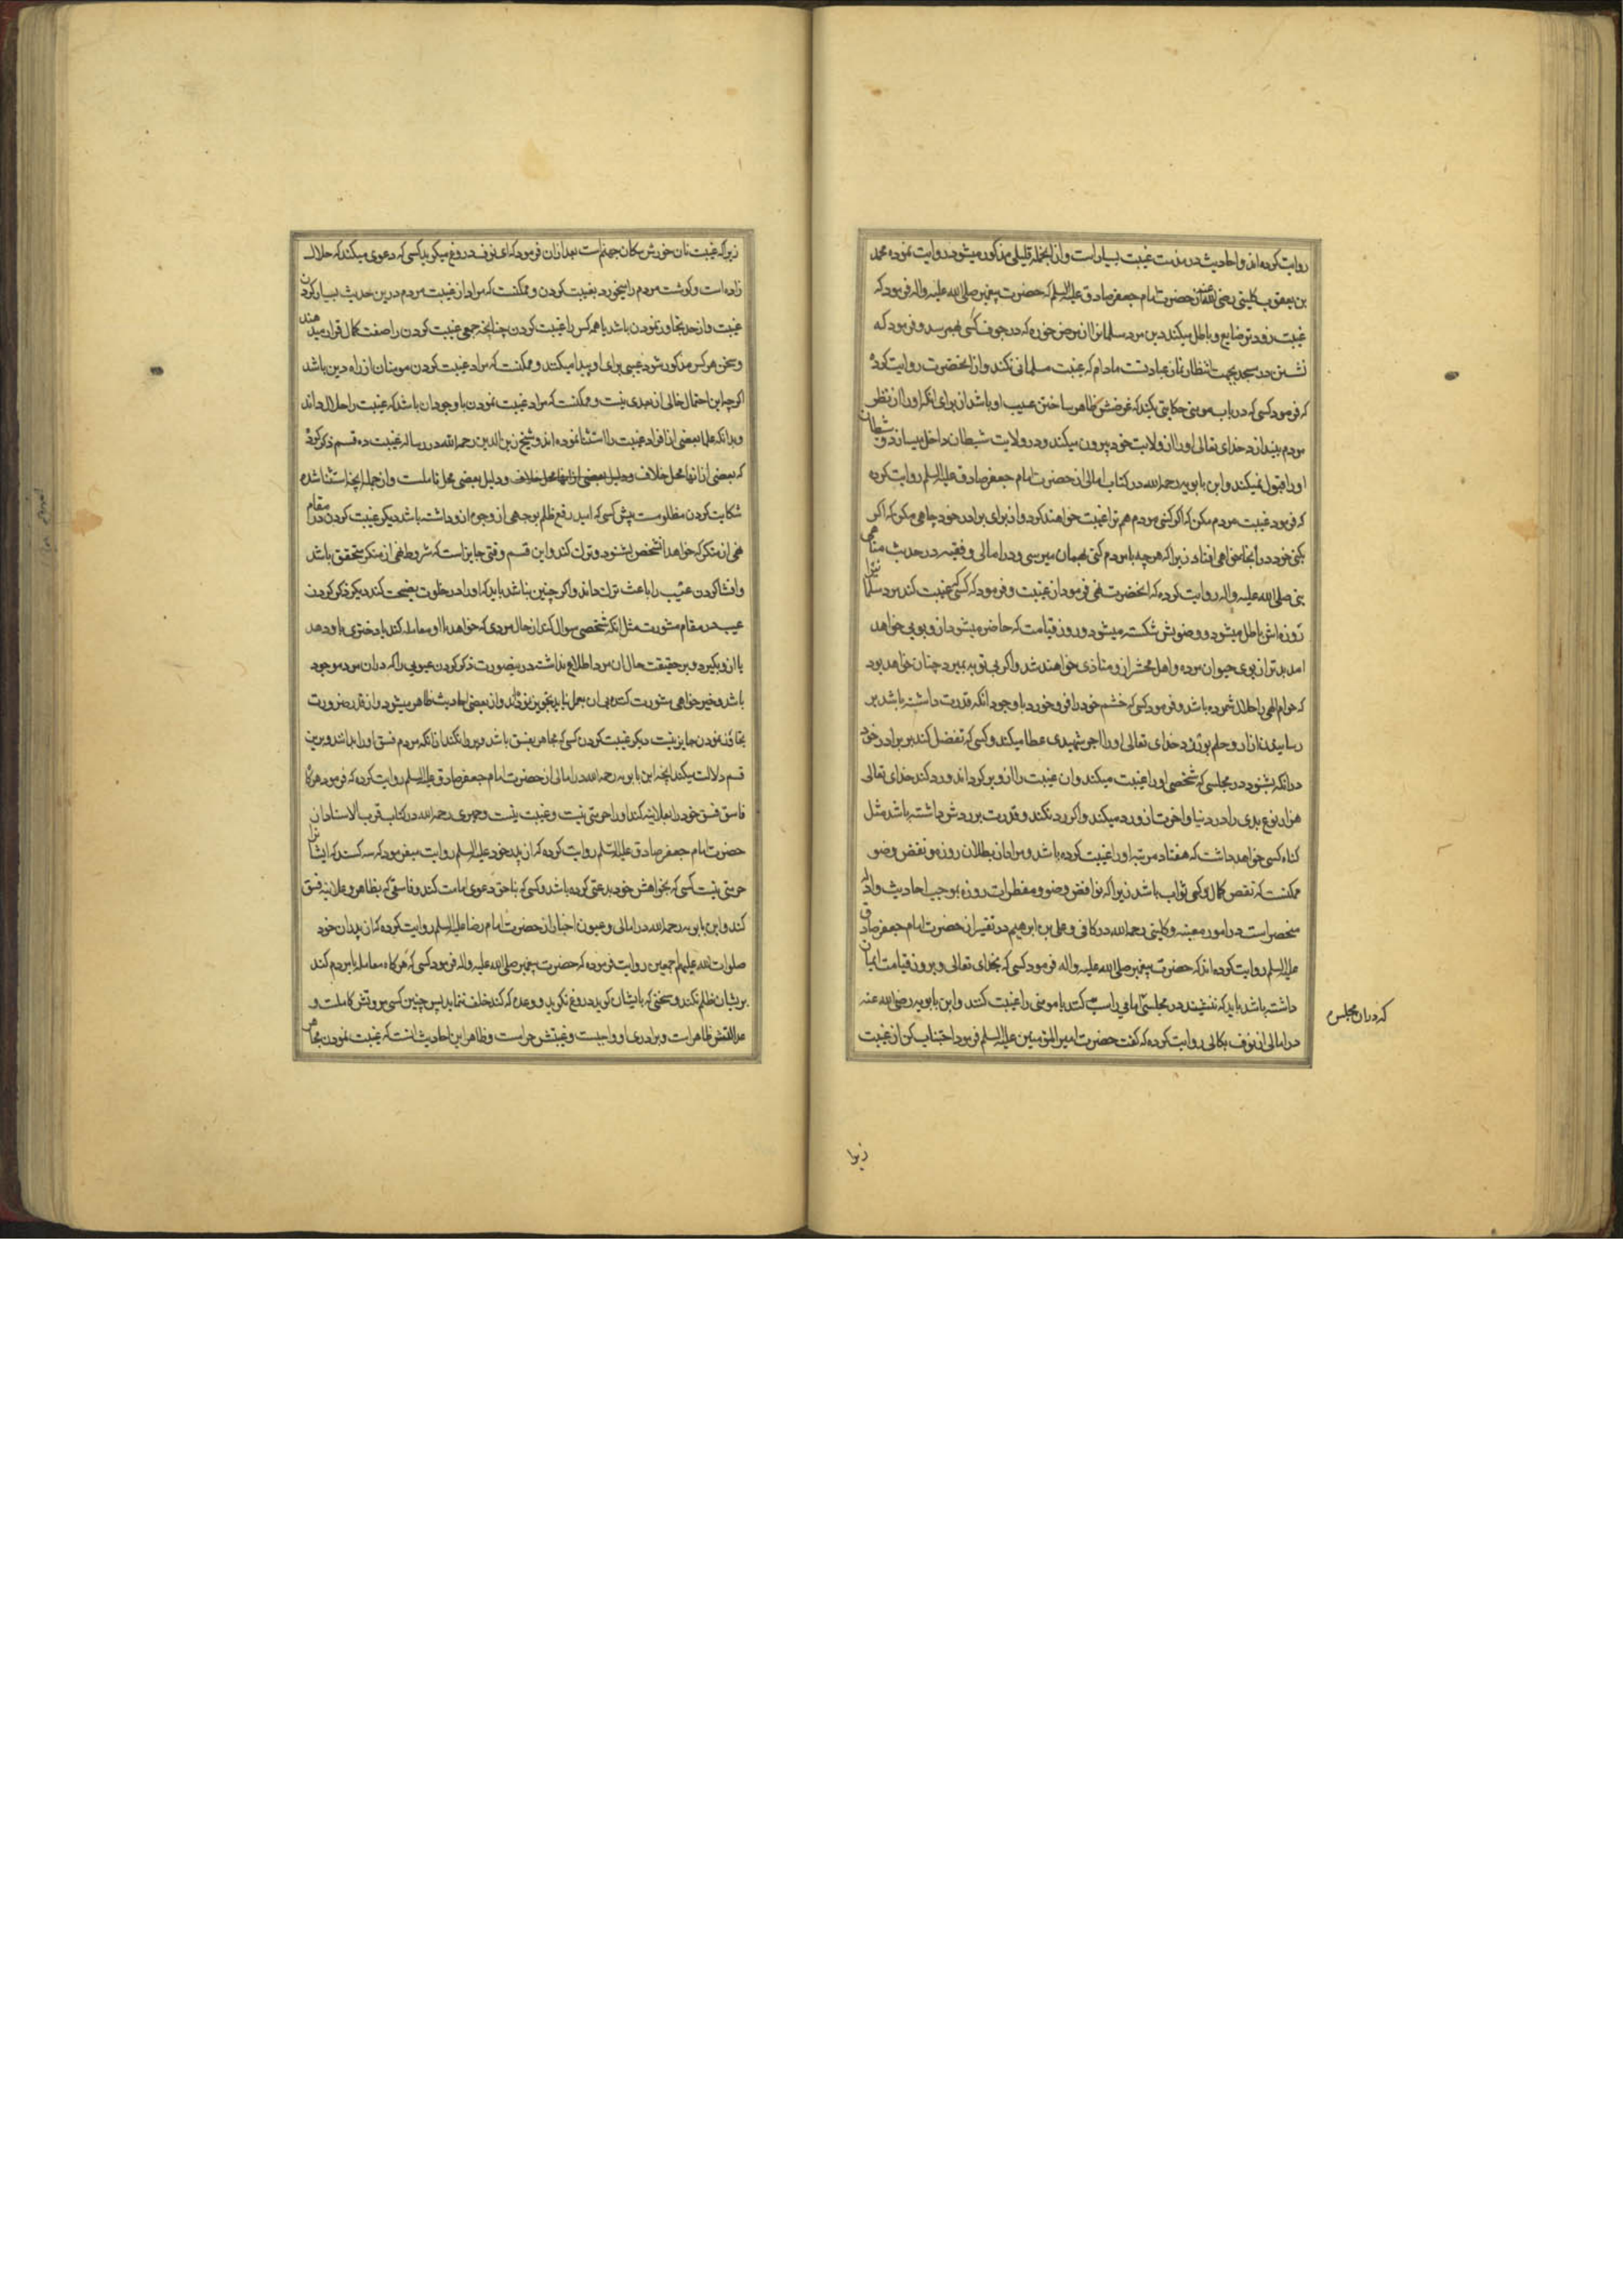 روایت کرده اند و احادیث در مذمت غیبت بسیار است و از انجمله قلیلی مذکور میشود روایت نموده محمد
بن یعقوب کلینی رضی الله عنه از حضرت امام جعفر صادق علیه السلم که حضرت پیغمبر صلی الله علیه واله فرمود که
غیبت زودتر ضایع و باطل میکند دین مرد مسلمانرا از مرض خوره که در جوف کسی بهم رسد و فرمود که
نشستن در مسجد بجهت انتظار نماز عبادتست مادام که غیبت مسلمانی نکند و از انحضرت روایت کرده
که فرمود کسی که در باب مومنی حکایتی بکند که غرضش ظاهر ساختن عیب او باشد از برای انکه او را از نظر
مردم بیندازد خدای تعالی او را از ولایت خود بیرون میکند و در ولایت شیطان داخل میسازد و شیطان
او را قبول نمیکند و ابن بابویه رحمه الله در کتاب امالی از حضرت امام جعفر صادق علیه السلم روایت کرده
که فرمود غیبت مردم مکن که اگر کنی مردم هم ترا غیبت خواهند کرد و از برای برادر خود چاهی مکن که اگر
بکنی خود در انجا خواهی افتاد زیرا که هر چه با مردم کنی بهمان میرسی و در امالی و فقیه در حدیث مناهی
نبی صلی الله علیه واله روایت کرده که انحضرت نهی فرمود از غیبت و فرمود که کسی که غیبت کند مرد مسلمانیرا
روزه اش باطل میشود و وضویش شکسته میشود و روز قیامت که حاضر میشود ازو بویی خواهد
امد بدتر از بوی حیوان مرده و اهل محشر ازو متاذی خواهند شد و اگر بی توبه بمیرد چنان خواهد بود
که حرام الهی را حلال شمرده باشد و فرمود کسی که خشم خود را فرو خورد با وجود انکه قدرت داشته باشد بر
رسانیدن ازار و حلم بورزد خدای تعالی او را اجر شهیدی عطا میکند و کسی که تفضل کند بر برادر خود
در انکه بشنود در مجلسی که شخصی او را غیبت میکند و ان غیبت را ازو برگرداند و رد کند خدای تعالی
هزار نوع بدی را در دنیا و اخرت ازو رد میکند و اگر رد نکند و قدرت بر ردش داشته باشد مثل
گناه کسی خواهد داشت که هفتاد مرتبه او را غیبت کرده باشد و مراد از بطلان روزه و نقض وضو
ممکنست که نقص کمال و کمی ثواب باشد زیرا که نواقض وضو و مفطرات روزه بموجب احادیث و ادله
منحصر است در امور معینه و کلینی رحمه الله در کافی و علی بن ابرهیم در تفسیر از حضرت امام جعفر صادق
علیه السلم روایت کرده اند که حضرت پیغمبر صلی الله علیه واله فرمود کسی که بخدای تعالی و بروز قیامت ایمان
داشته باشد باید که ننشیند در مجلسی امامی را سب کنند یا مومنی را غیبت کنند و ابن بابویه رضی الله عنه
که در ان مجلس
در امالی از نوف بکالی روایت کرده که گفت حضرت امیر المؤمنین علیه السلم فرمود اجتناب کن از غیبت
زیرا
زیرا که غیبت نان خورش سگان جهنم است بعد از ان فرمود که ای نوف دروغ میگوید کسی که دعوی میکند که حلال
زاده است و گوشت مردم را میخورد بغیبت کردن و ممکنست که مراد از غیبت مردم درین حدیث بسیار کردن
غیبت و از حد تجاوز نمودن باشد یا همه کس را غیبت کردن چنانچه جمعی غیبت کردن را صفت کمال قرار میدهند
و سخن هر کس مذکور شود عیبی برای او پیدا میکنند و ممکنست که مراد غیبت کردن مومنان از راه دین باشد
اگر چه این احتمال خالی از بعدی نیست و ممکنست که مراد غیبت نمودن با وجود ان باشد که غیبت را حلال داند
و بدانکه علما بعضی از افراد غیبت را استثنا نموده اند و شیخ زین الدین رحمه الله در رساله غیبت ده قسم ذکر کرده
که بعضی از انها محل خلاف و دلیل بعضی از انها محل خلاف و دلیل بعضی محل تاملست و از جمله انچه استثنا شده
شکایت کردن مظلومست پیش کسی که امید رفع ظلم بوجهی از وجوه ازو داشته باشد دیگر غیبت کردن در مقام
نهی از منکر که خواهد انشخص بشنود و ترک کند و این قسم وقتی جایز است که شروط نهی از منکر متحقق باشد
و افشا کردن عیب را باعث ترک داند و اگر چنین نباشد باید که او را در خلوت نصیحت کند دیگر ذکر کردن
عیب در مقام مشورت مثل انکه شخصی سوال کند از حال مردی که خواهد با او معامله کند یا دختری باو دهد
یا ازو بگیرد و بر حقیقت حال ان مرد اطلاع نداشته در ینصورت ذکر کردن عیوبی را که در ان مرد موجود
باشد و خیر خواهی مشورت کننده بی ان بعمل نیاید تجویز نموده اند و از بعضی احادیث ظاهر میشود و از قدر ضرورت
تجاوز نمودن جایز نیست دیگر غیبت کردن کسی که مجاهر بفسق باشد و پروا نکند از انکه مردم فسق او را بدانند و برین
قسم دلالت میکند انچه ابن بابویه رحمه الله در امالی از حضرت امام جعفر صادق علیه السلم روایت کرده که فرمود هرگاه
فاسق فسق خود را بعلانیه کند او را حرمتی نیست و غیبت نیست و حمیری رحمه الله در کتاب قرب الاسناد از ان
حضرت امام جعفر صادق علیه السلم روایت کرده که از پدر خود علیه السلم روایت میفرمود که سه کسند که ایشانرا
حرمتی نیست کسی که بخواهش خود بدعتی کرده باشد و کسی که بناحق دعوی امامت کند و فاسقی که بظاهر و علانیه فسق
کند و ابن بابویه رحمه الله در امالی و عیون اخبار از حضرت امام رضا علیه السلم روایت کرده که از پدران خود
صلوات الله علیهم اجمعین روایت فرموده که حضرت پیغمبر صلی الله علیه واله فرمود کسی که هرگاه معامله با مردم کند
بریشان ظلم نکند و سخنی که بایشان گوید دروغ نگوید و وعده که کند خلف ننماید پس چنین کسی مروتش کاملست و
عدالتش ظاهر است و برادری او واجبست و غیبتش حرامست و ظاهر این احادیث انست که غیبت نمودن مجاهر